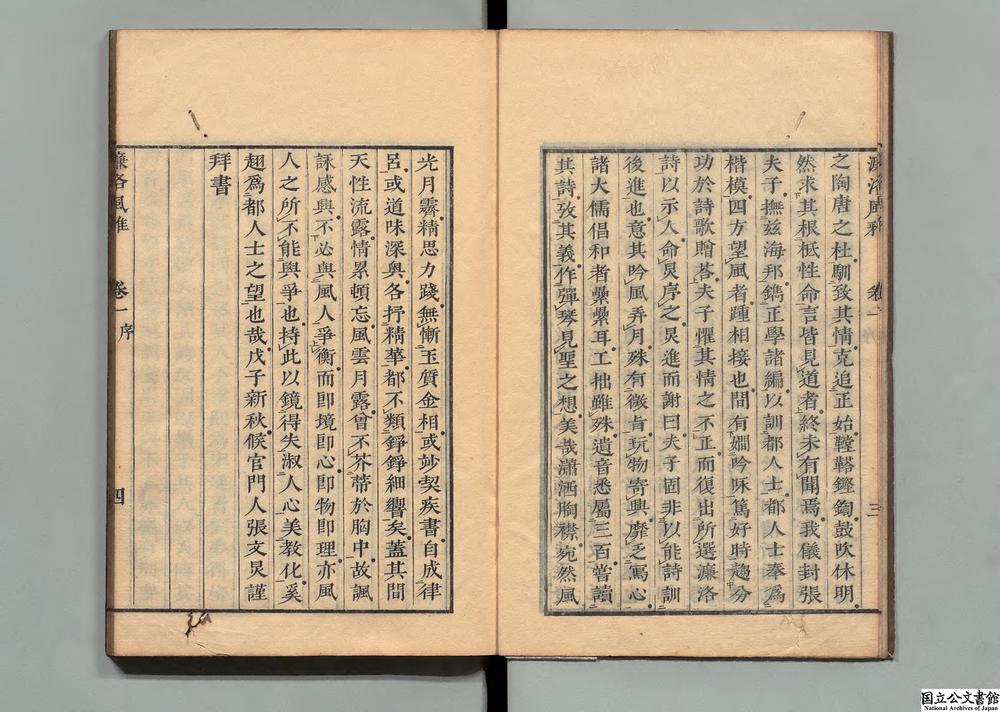 濂洛風雅 卷一 序 三
之陶唐之杜馴致其情克追正始鞺鞳鏗鍧鼓吹休明
然求其根柢性命言皆見道者終未有聞焉我儀封張
夫子撫兹海邦鐫正學諸編以訓都人士都人士奉爲
楷模四方望風者踵相接也間有嫺吟咏篤好時趨分
功於詩歌贈荅夫子懼其情之不正而復出所選濂洛
詩以示人命炅序之炅進而謝曰夫子固非以能詩訓
後進也意其吟風弄月殊有微肯玩物寄興靡乏寫心
諸大儒倡和者纍纍耳工拙雖殊遺音悉屬三百甞讀
其詩攷其義作彈琴見聖之想美哉瀟洒胸襟宛然風
光月霽精思力踐無慚玉質金相或妙契疾書自成律
呂或道味深奥各抒精華都不類錚錚細響矣蓋其間
天性流露情累頓忘風雲月露曾不芥蔕於胸中故諷
詠感興不必與風人爭衡而卽境卽心卽物卽理亦風
人之所不能與爭也持此以鏡得失淑人心美教化奚
翅爲都人士之望也哉戊子新秋候官門人張文炅謹
拜書
濂洛風雅 卷一 序 四
国立公文書館
National Archives of Japan